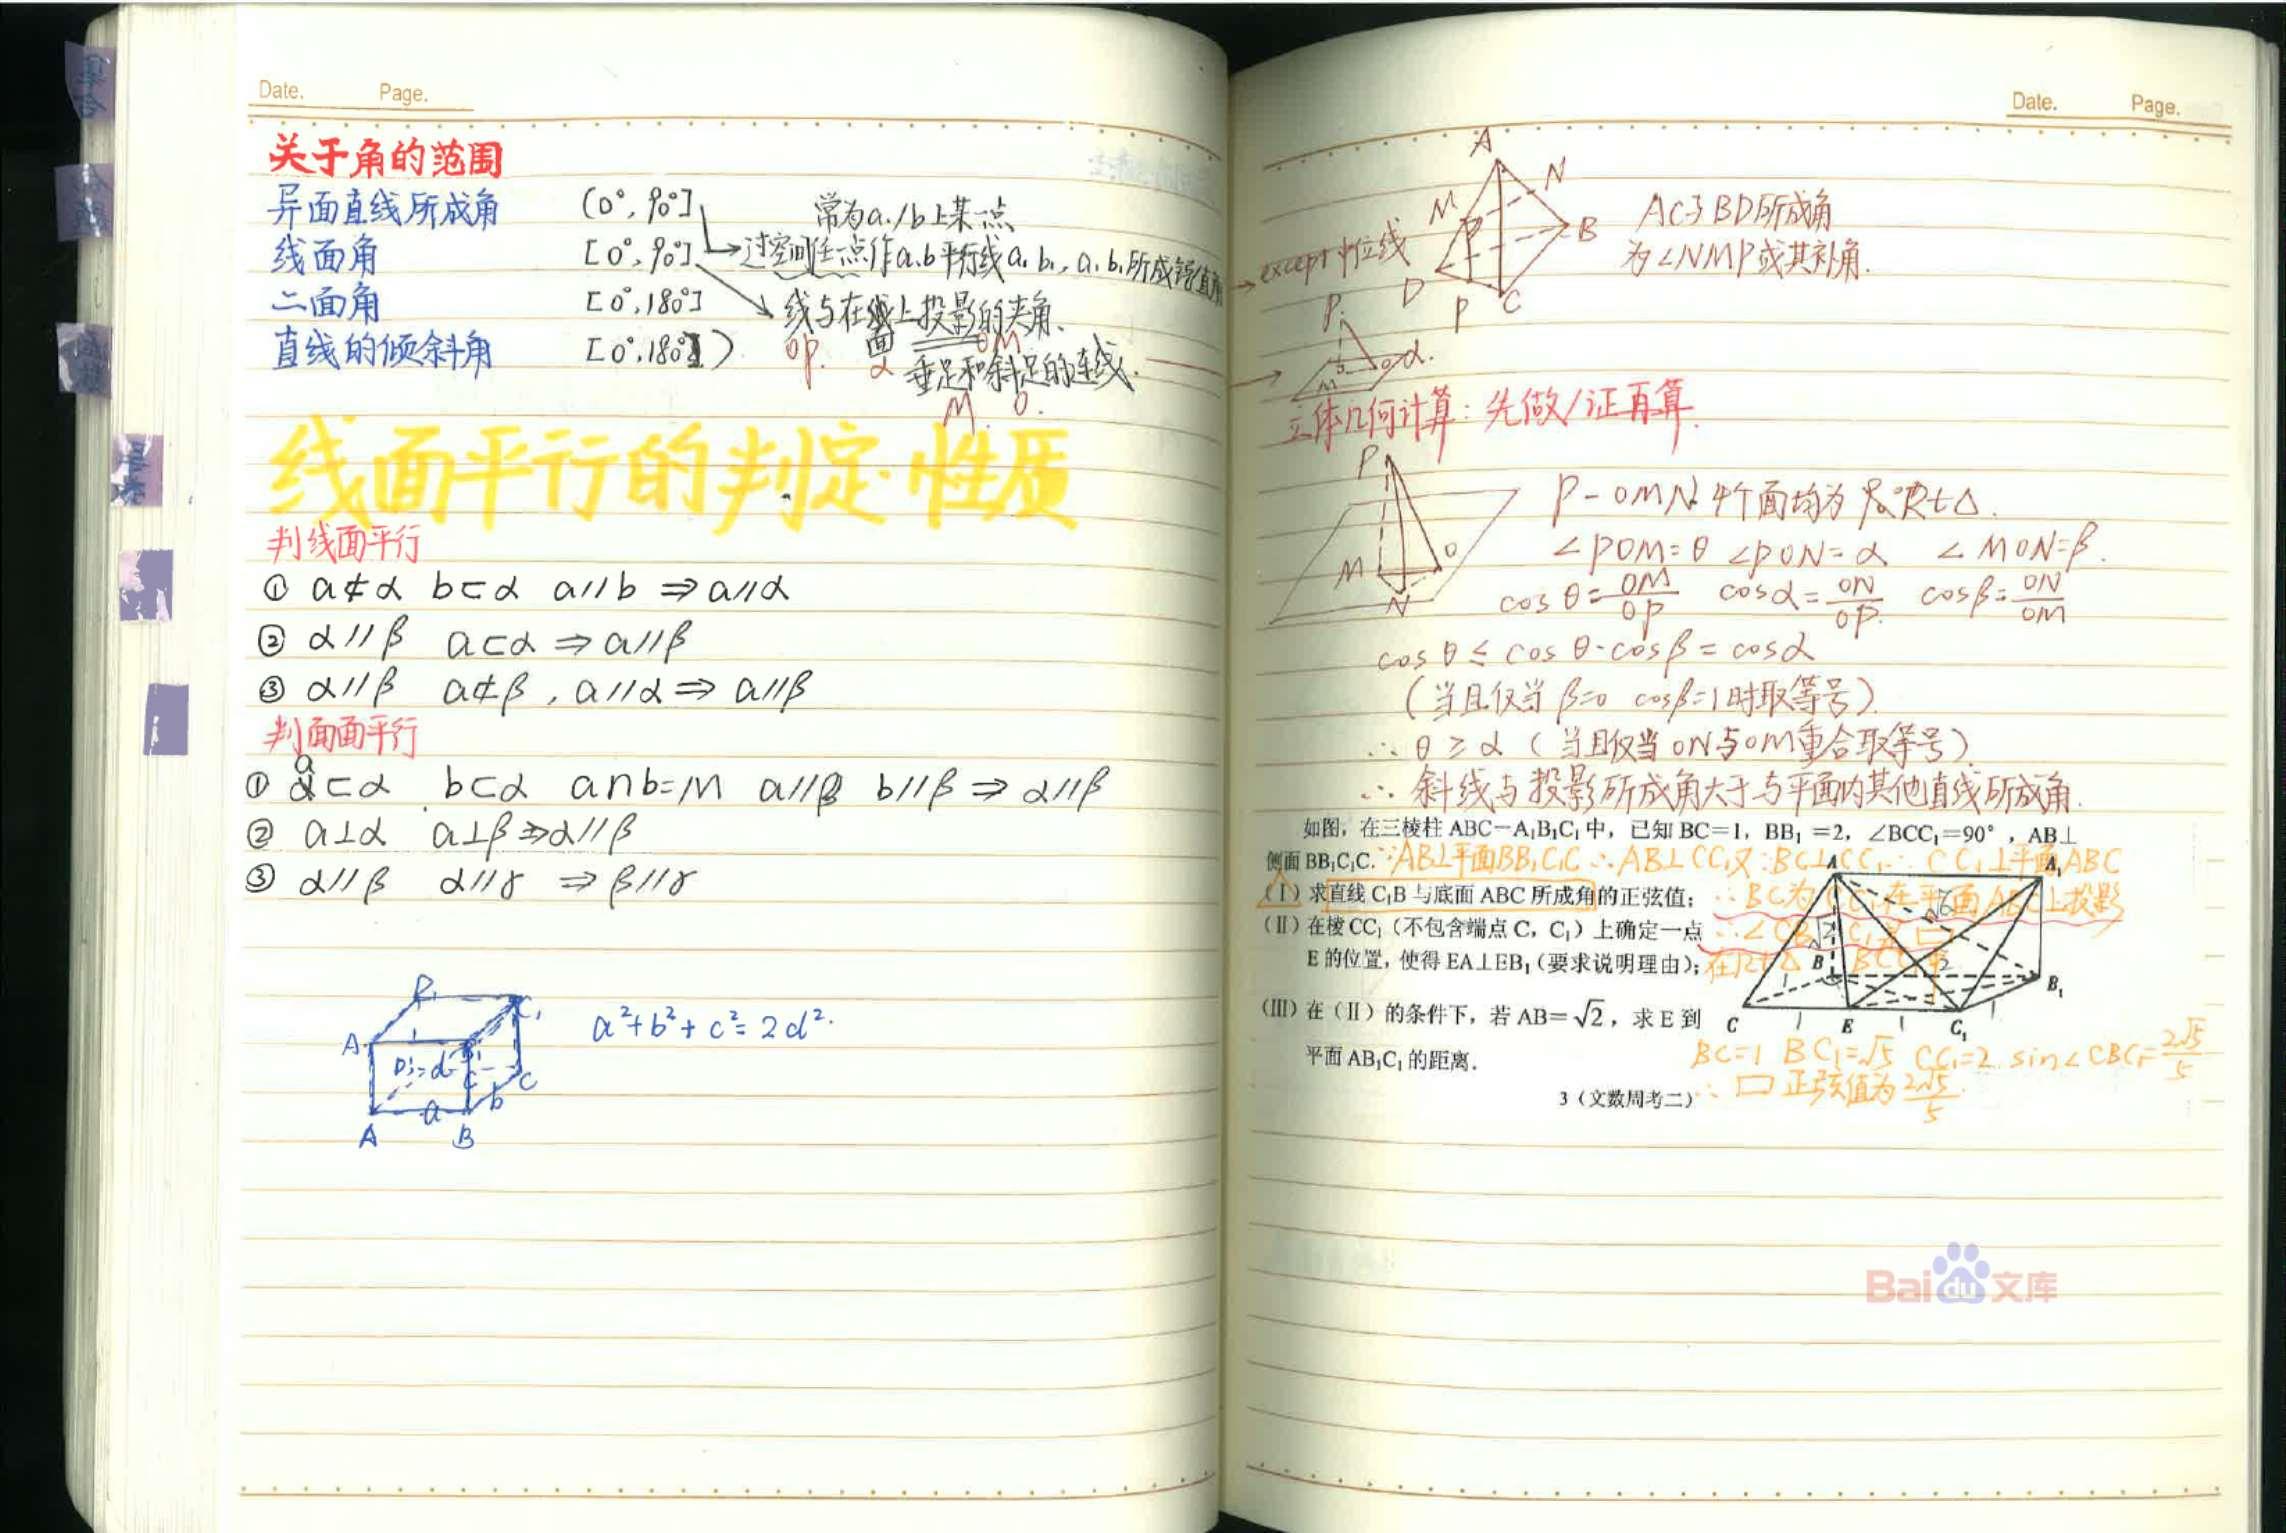 Date. Page.
关于角的范围
异面直线所成角 (0°, 90°] 常为a./b上某一点
线面角 [0°, 90°] 过空间任一点作a.b平行线a₁ b₁, a₁ b₁所成锐(直)角
二面角 [0°, 180°] 线与在面上投影的夹角、
直线的倾斜角 [0°, 180°) OP. α OM
垂足和斜足的连线.
M. O.
线面平行的判定·性质
判线面平行
① a⊄α b⊂α a//b ⇒ a//α
② α//β a⊂α ⇒ a//β
③ α//β a⊄β , a//α ⇒ a//β
判面面平行
① a⊂α b⊂α a∩b=M a//β b//β ⇒ α//β
② a⊥α a⊥β ⇒ α//β
③ α//β α//γ ⇒ β//γ
a²+b²+c²=2d².
A₁ C₁ d C a b
A B
Date. Page.
A N M B D P C
AC与BD所成角
为∠NMP或其补角.
except 中位线
P M O α.
立体几何计算: 先做/证再算.
P M N O
P-OMN 4个面均为Rt△.
∠POM=θ ∠PON=α ∠MON=β.
cosθ=OM/OP cosα=ON/OP. cosβ=ON/OM
cosθ≤cosθ·cosβ=cosα
(当且仅当 β=0 cosβ=1时取等号).
∴ θ≥α (当且仅当ON与OM重合取等号)
∴ 斜线与投影所成角大于与平面内其他直线所成角.
如图，在三棱柱 ABC－A₁B₁C₁ 中，已知 BC=1，BB₁ =2，∠BCC₁=90°，AB⊥
侧面 BB₁C₁C. ∵AB⊥平面BB₁C₁C ∴AB⊥CC₁ 又∵BC⊥CC₁ ∴ CC₁⊥平面ABC
(Ⅰ) 求直线 C₁B 与底面 ABC 所成角的正弦值; ∴BC为 在平面ABC上投影
(Ⅱ) 在棱 CC₁ (不包含端点 C, C₁) 上确定一点
E 的位置，使得 EA⊥EB₁ (要求说明理由); 在Rt△BCC₁中
(Ⅲ) 在 (Ⅱ) 的条件下，若 AB=√2，求 E 到
平面 AB₁C₁ 的距离.
A A₁ B B₁ C E C₁
BC=1 BC₁=√5 CC₁=2 sin∠CBC₁=2√5/5
∴ □ 正弦值为 2√5/5.
3 (文数周考二)
Baidu文库